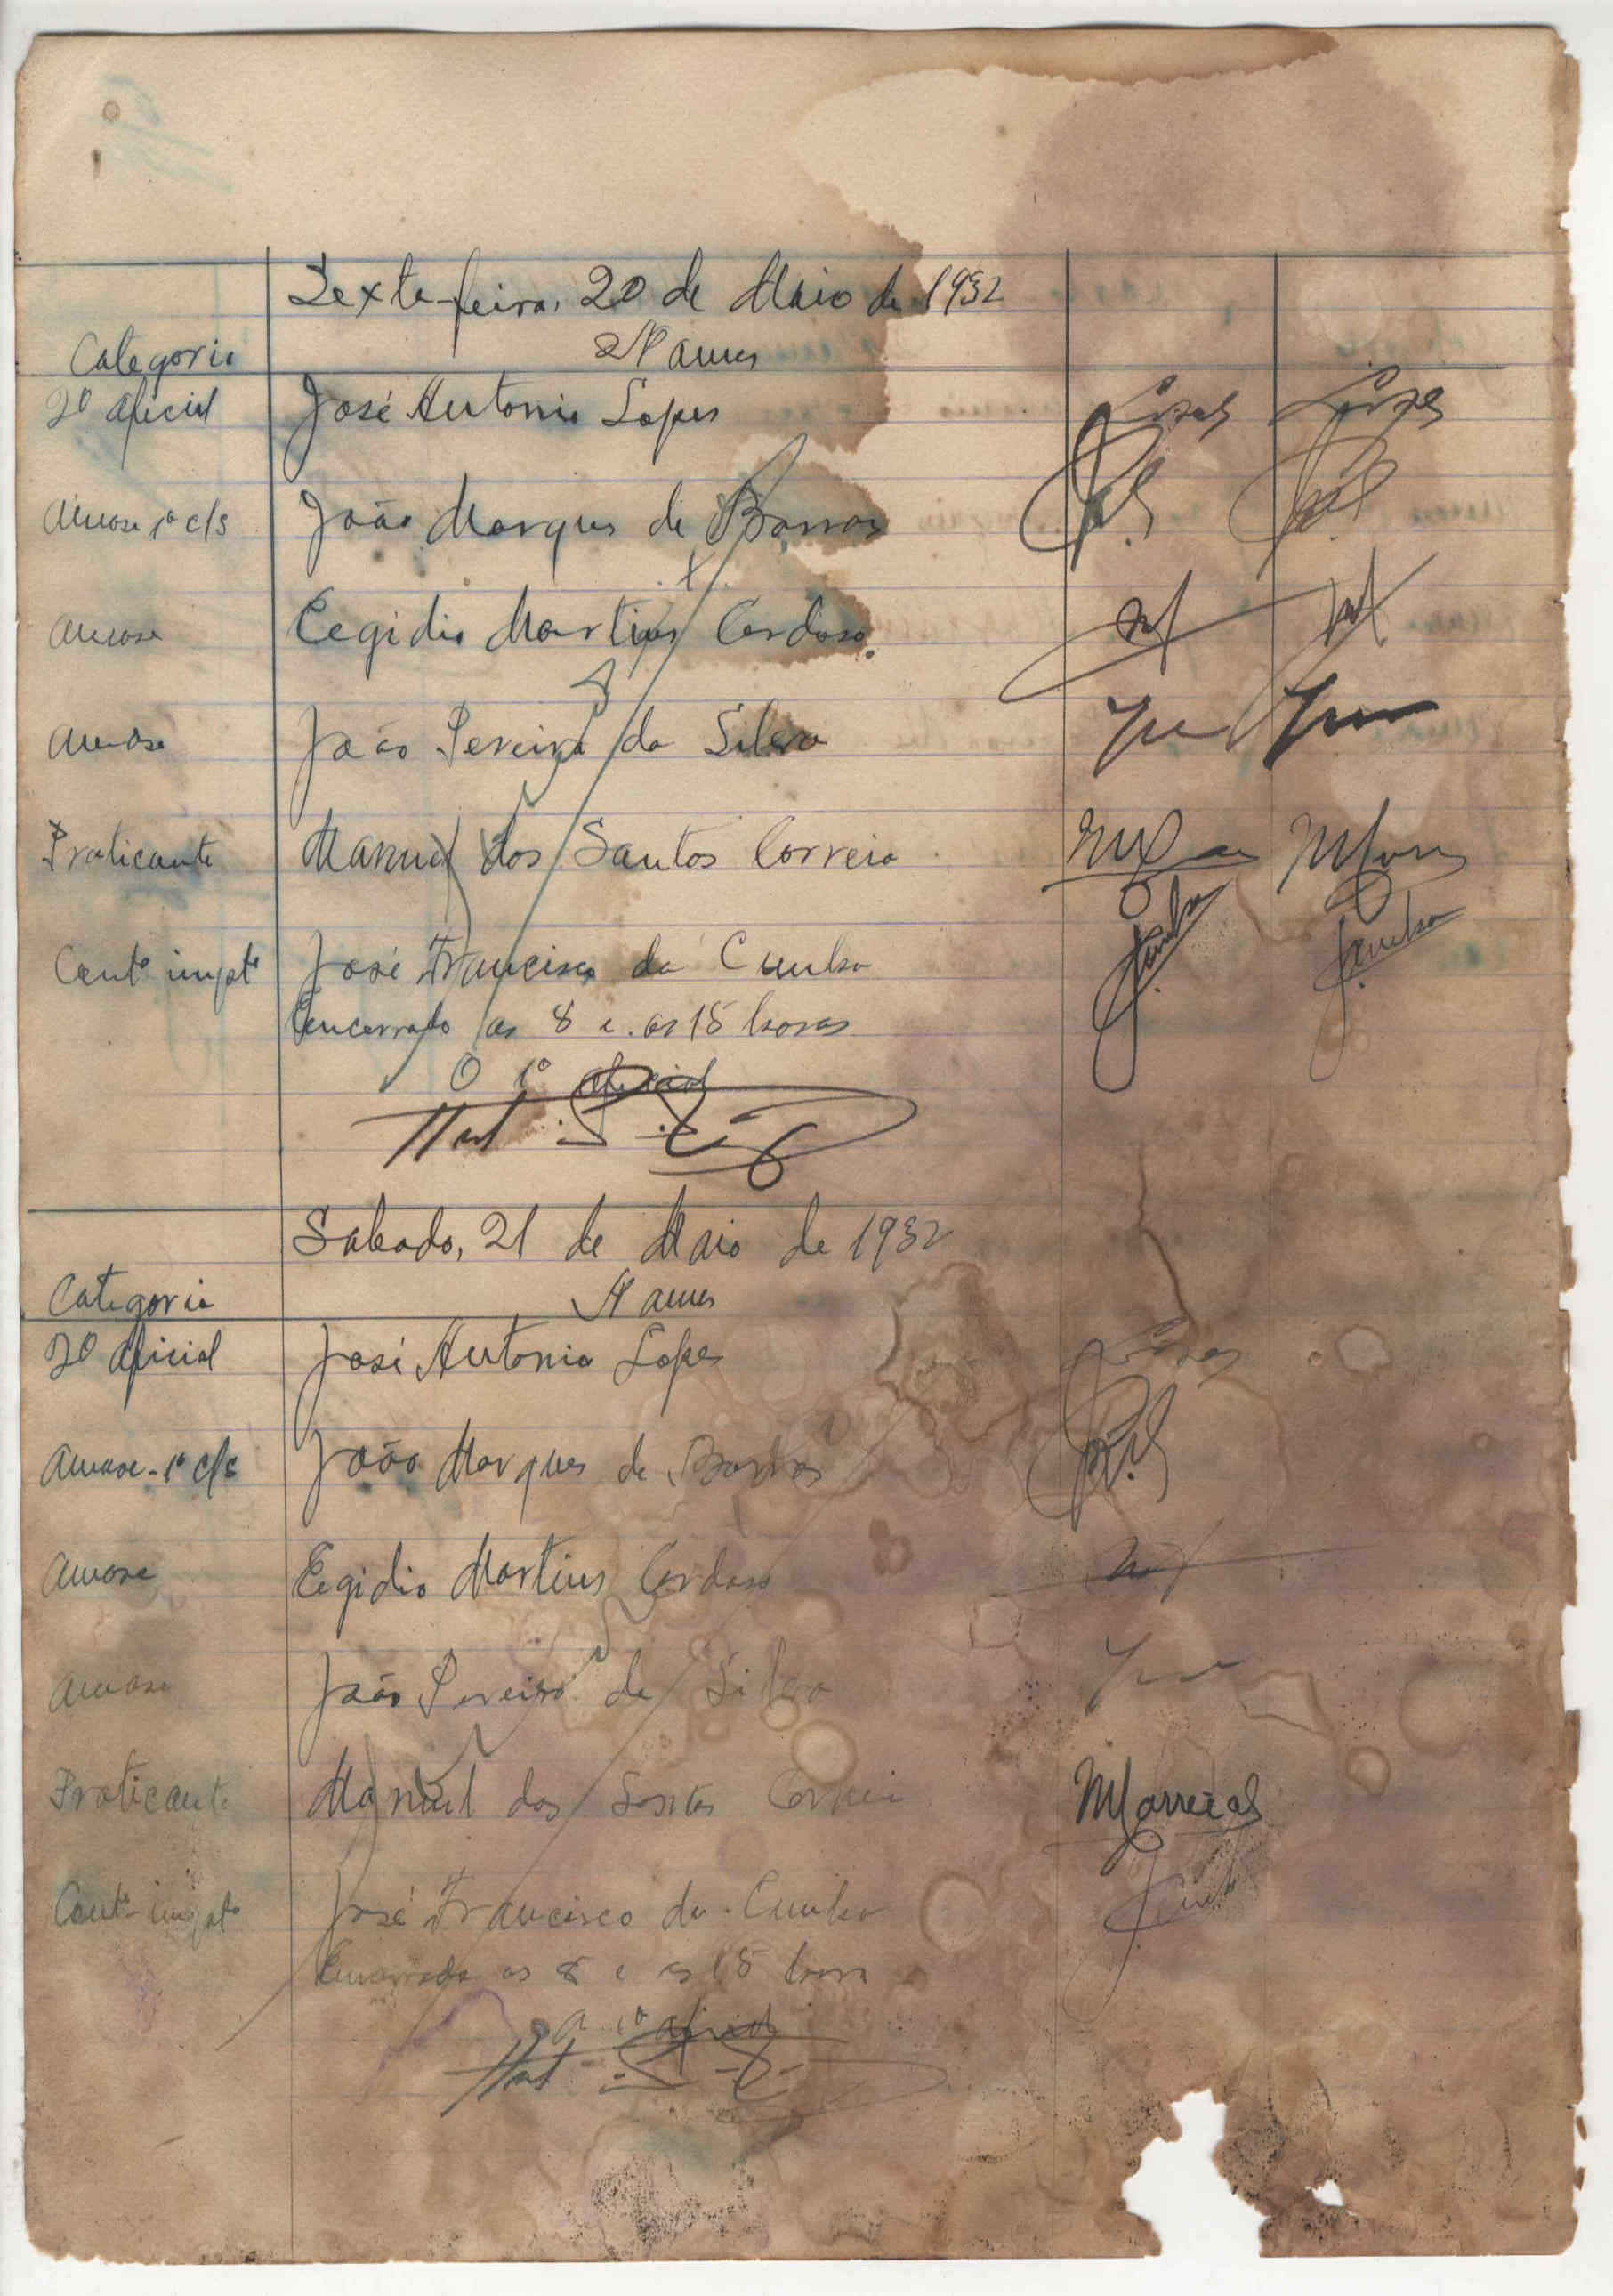 Sexta-feira, 20 de Maio de 1932
Categoria Nomes
2º oficial José Antonio Lopes Lopes Lopes
1ª c/s João Marques de Barros
Eegidio Martins Cardoso
João Pereira da Silva
Praticante Manuel dos Santos Correia
José Francisco da Cunha Cunha Cunha
Encerrado as 8 e as 15 horas
O 1º oficial
Sabado, 21 de Maio de 1932
Categoria Nomes
2º oficial José Antonio Lopes Lopes
1ª c/s João Marques de Barros
Egidio Martins Cardoso
João Pereira da Silva
Praticante Manuel dos Santos Correia
José Francisco da Cunha Cunha
Encerrado as 8 e as 15 horas
1º oficial